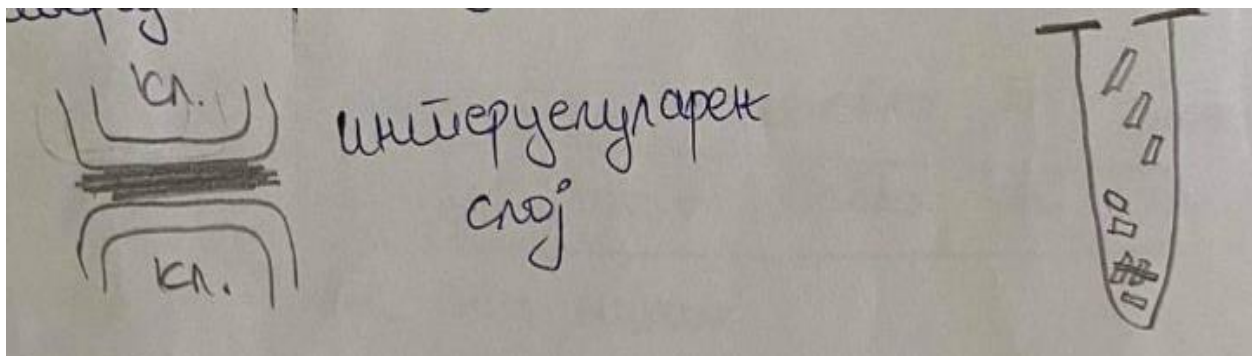 кл.
интерцелуларен
слој
кл.